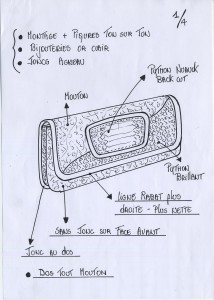 1/4
• MONTAGE + PIQURES TON SUR TON
• BIJOUTERIES OR CLAIR
• JONCS AGNEAU
PYTHON NUBUCK
BACK CUT
MOUTON
PYTHON
BRILLANT
LIGNE RABAT PLUS
DROITE - PLUS NETTE
SANS JONC SUR FACE AVANT
JONC AU DOS
• DOS TOUT MOUTON